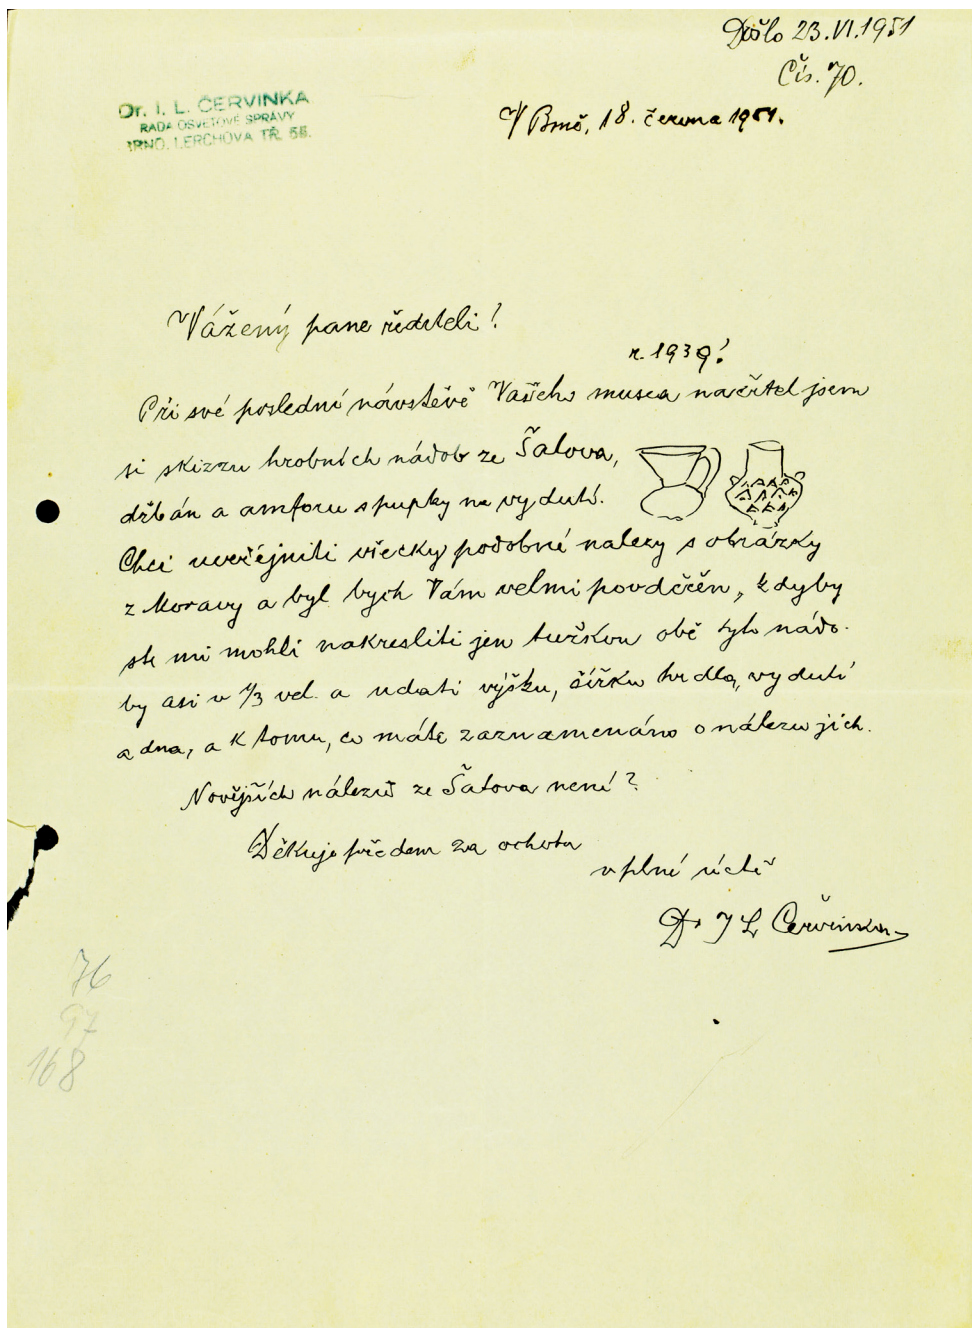 Došlo 23.VI.1951
Čís. 70.
Dr. I. L. ČERVINKA
RADA OSVĚTOVÉ SPRÁVY
BRNO, LERCHOVA TŘ. 56.
V Brně, 18. června 1951.
Vážený pane řediteli!
r. 1939!
Při své poslední návstěvě Vašeho musea načrtel jsem
si skizzu hrobních nádob ze Šatova,
džbán a amforu s pupky na vyduti.
Chci uveřejniti všecky podobné nalezy s obrázky
z Moravy a byl bych Vám velmi povděčěn, kdyby
ste mi mohli nakresliti jen tužkou obě tyto nádo-
by asi v 1/3 vel. a udati výšku, šířku hrdla, vyduti
a dna, a k tomu, co máte zaznamenáno o nálezu jich.
Novějších nálezů ze Šatova není?
Děkuje předem za ochotu
v plné úctě
Dr I L Červinka
76
97
168